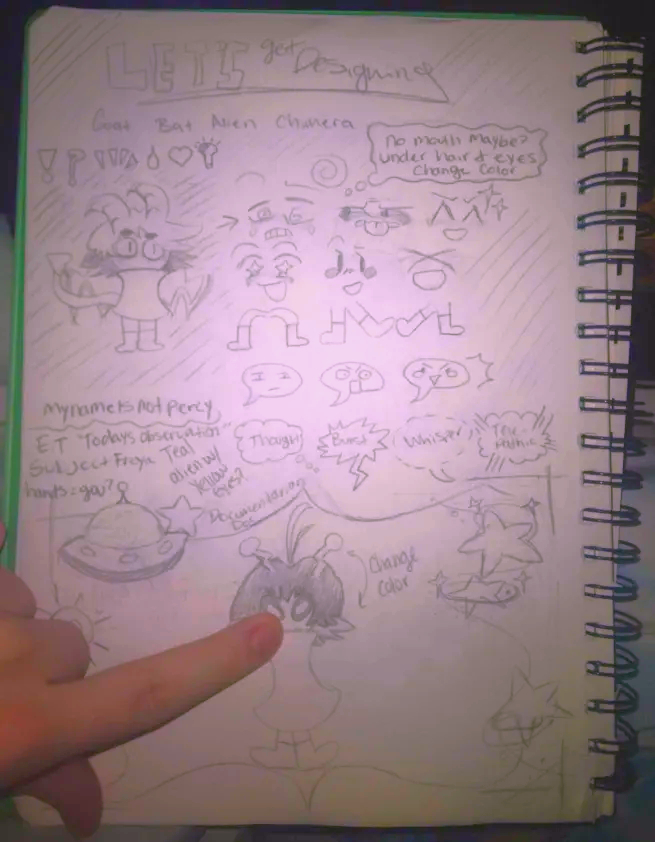 LET'S get Designing
Goat Bat Alien Chimera
No mouth maybe?
under hair & eyes
Change Color
My name is not Percy
E.T "Todays observation"
Subject Freya
Teal
alien w/
Yellow
eyes?
hants = gay?
Thought
Burst
Whisper
Documentarian
Doc
Change
Color